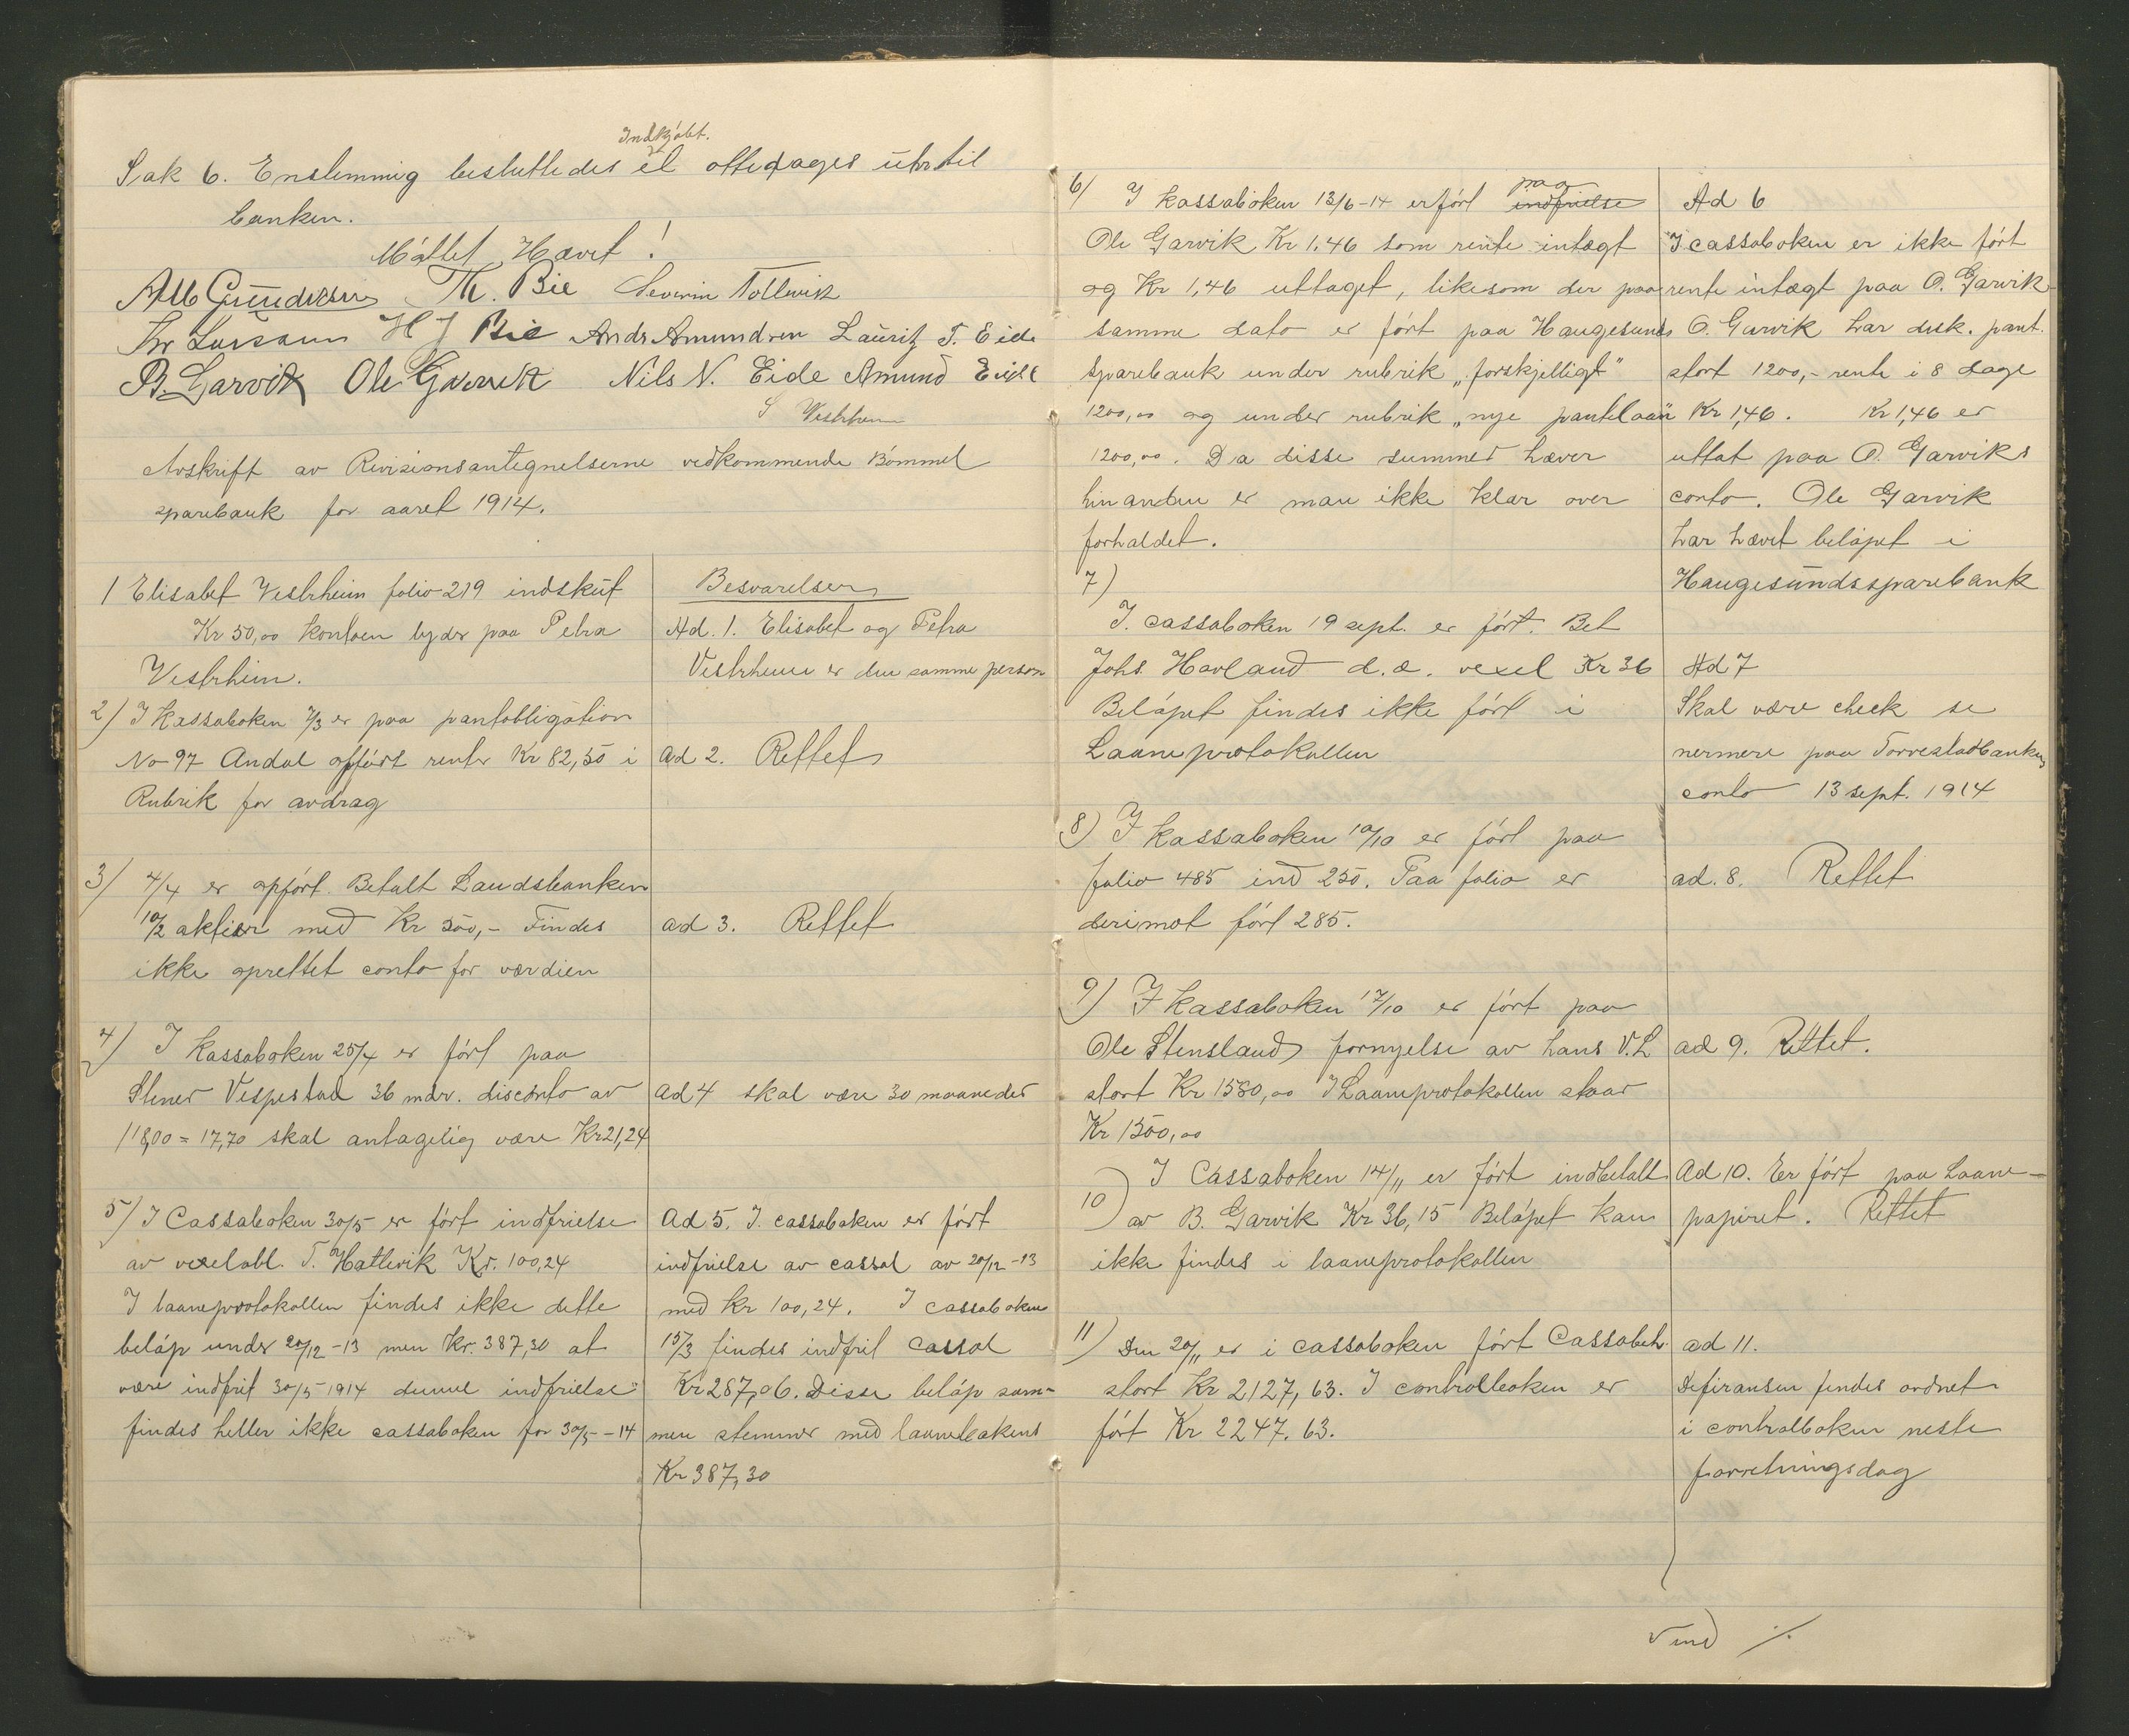 Indkjøbt.
Sak 6. Enstemmig besluttedes et ottedages uhr til
banken.
Møtet Hævet!
Alb Gundersen Th. Bie Severin Tollevik
H J Bie Ands Amundsen Lauritz T. Eide
B. Garvik Ole Garvik Nils N. Eide Amund Eide
S Vestrheim
Avskrift av Revisionsantegnelserne vedkommende Bømmel
sparebank for aaret 1914.
1 Elisabet Vestrheim folio 219 indskut
Kr 50,00 kontoen lyder paa Petra
Vestrheim.
2) I Kassaboken 7/3 er paa pantobligation
No 97 Andal opført renter Kr 82,50 i
Rubrik for avdrag
3) 4/4 er opført. Betalt Landsbanken
10/2 aktier med Kr 500,- Findes
ikke oprettet conto for værdien
4) I Kassaboken 25/4 er ført paa
Stener Vespestad 36 mdr. disconto av
118,00 = 17,70 skal antagelig være Kr 21,24
5) I Cassaboken 30/5 er ført indfrielse
av vexelobl. T. Hatlevik Kr. 100,24
I laaneprotokollen findes ikke dette
beløp under 20/12-13 men Kr. 387,30 at
være indfrit 30/5 1914 denne indfrielse
findes heller ikke cassaboken for 30/5-14
Besvarelser
Ad. 1. Elisabet og Petra
Vestrheim er den samme person
ad 2. Rettet
ad 3. Rettet
ad 4 skal være 30 maaneder
Ad 5. I. cassaboken er ført
indfrielse av cassal av 20/12-13
med Kr 100,24. I cassaboken
15/3 findes indfrit cassal
Kr 287,06. Disse beløp sam-
men stemmer med laanebokens
Kr 387,30
6) I kassaboken 13/6-14 er ført paa indfrielse
Ole Garvik Kr 1.46 som rente intægt
og Kr 1,46 uttaget, likesom der paa
samme dato er ført paa Haugesunds
Sparebank under rubrik „forskjelligt"
1200,00 og under rubrik „nye pantelaan"
1200,00. Da disse summer hæver
hinanden er man ikke klar over
forholdet.
7)
I. cassaboken 19 sept. er ført. Bet
Johs. Hovland d.æ. vexel Kr 36
Beløpet findes ikke ført i
Laaneprotokollen
8) I kassaboken 10/10 er ført paa
folio 485 ind 250. Paa folio er
derimot ført 285.
9) I kassaboken 17/10 er ført paa
Ole Stensland fornyelse av hans V.L
stort Kr 1580,00 I Laaneprotokollen staar
Kr 1500,00
10) I Cassaboken 14/11 er ført indbetalt
av B. Garvik Kr 36,15 Beløpet kan
ikke findes i laaneprotokollen
11) Den 20/11 er i cassaboken ført Cassabeh.
stort Kr 2127,63. I controlboken er
ført Kr 2247.63.
Ad 6
I cassaboken er ikke ført
rente intægt paa O. Garvik
O. Garvik har disk. pant.
stort 1200,- rente i 8 dage
Kr 1,46. Kr 1,46 er
uttat paa O. Garviks
conto. Ole Garvik
har hævet beløpet i
Haugesundssparebank
Ad 7
Skal være check se
nermere paa Torvestadbankens
conto 13 sept. 1914
ad. 8. Rettet
ad 9. Rettet.
Ad 10. Er ført paa Laane-
papiret. Rettet
ad 11.
Difiransen findes ordnet
i controlboken neste
forretningsdag
Vend ./.